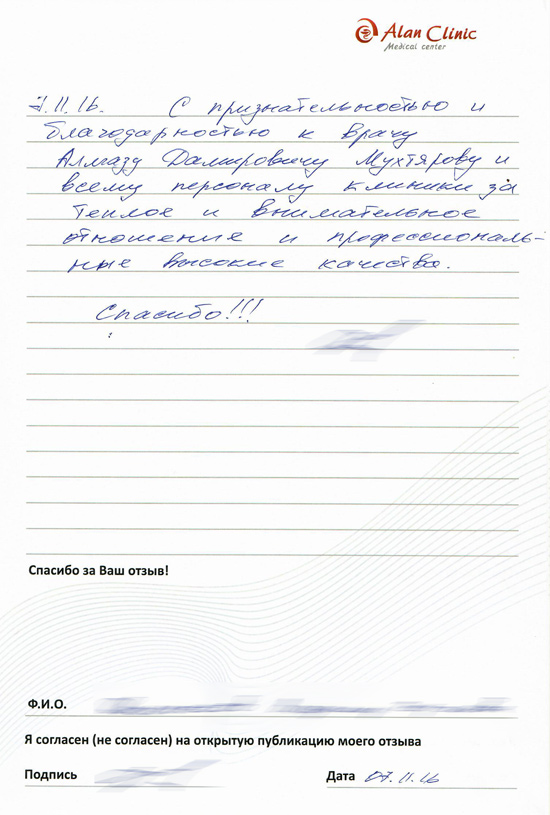 Alan Clinic
Medical center
7.11.16. С признательностью и
благодарностью к врачу
Алмазу Дамировичу Мухтярову и
всему персоналу клиники за
теплое и внимательное
отношение и профессиональ-
ные высокие качества.
Спасибо!!!
Спасибо за Ваш отзыв!
Ф.И.О.
Я согласен (не согласен) на открытую публикацию моего отзыва
Подпись
Дата 07.11.16